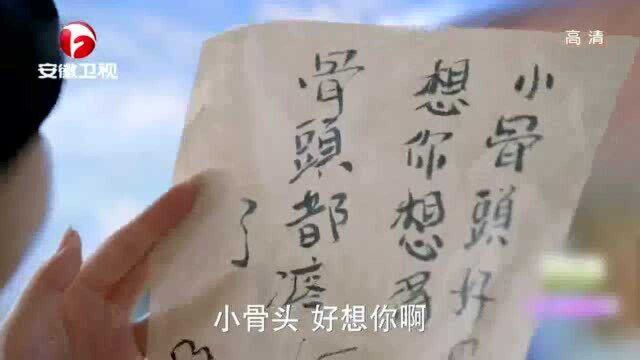 安徽卫视
高清
小骨頭好
想你想
骨頭都
了
小骨头 好想你啊